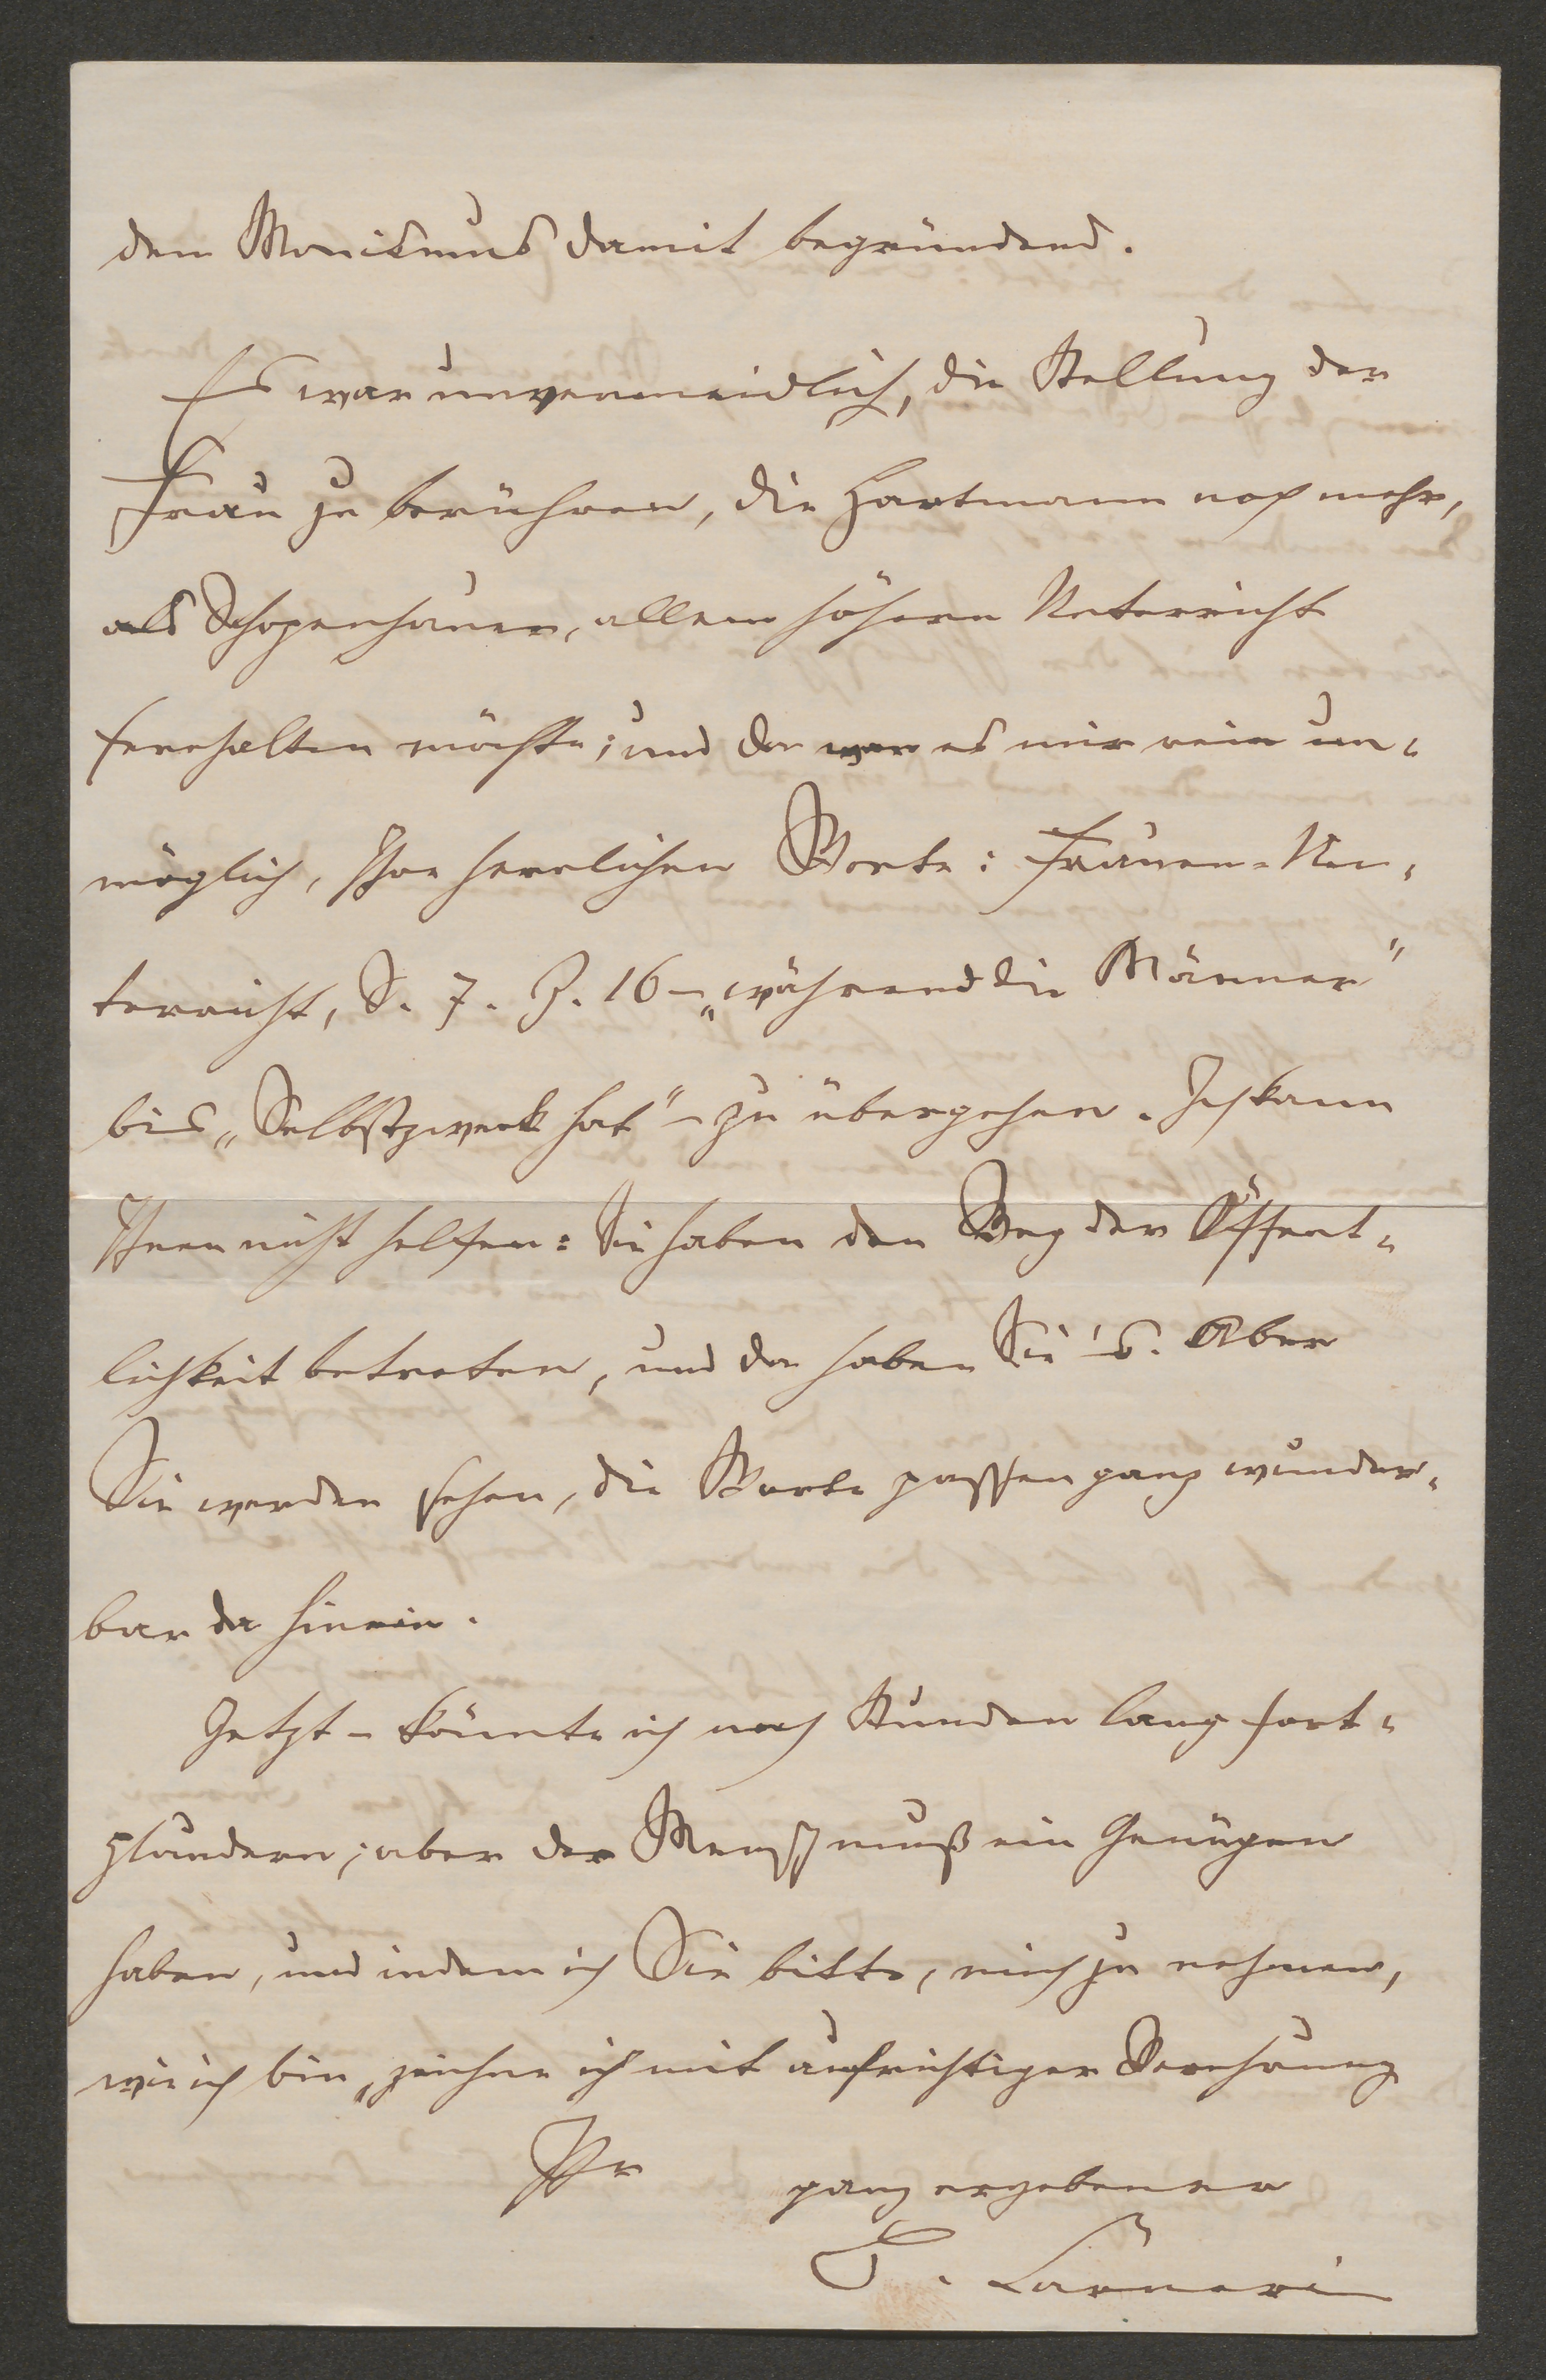 den Monismus damit begründend.
Es war unvermeidlich, die Stellung der
Frau zu berühren, die Hartmann noch mehr,
als Schopenhauer, allem höhern Unterricht
fernhalten möchte; und da war es mir rein un-
möglich, Ihre herrlichen Worte: Frauen-Un-
terricht, S. 7. Z. 16 – „während die Männer"
bis „Selbstzweck hat" – zu übergehen. Ich kann
Ihnen nicht helfen: Sie haben den Weg der Öffent-
lichkeit betreten, und da haben Sie's. Aber
Sie werden sehen, die Worte passen ganz wunder-
bar da hinein.
Jetzt – könnte ich noch Stunden lang fort-
plaudern; aber der Mensch muß ein Genügen
haben, und indem ich Sie bitte, mich zu nehmen,
wie ich bin, zeichne ich mit aufrichtiger Verehrung
Ihr
ganz ergebener
B. Carneri